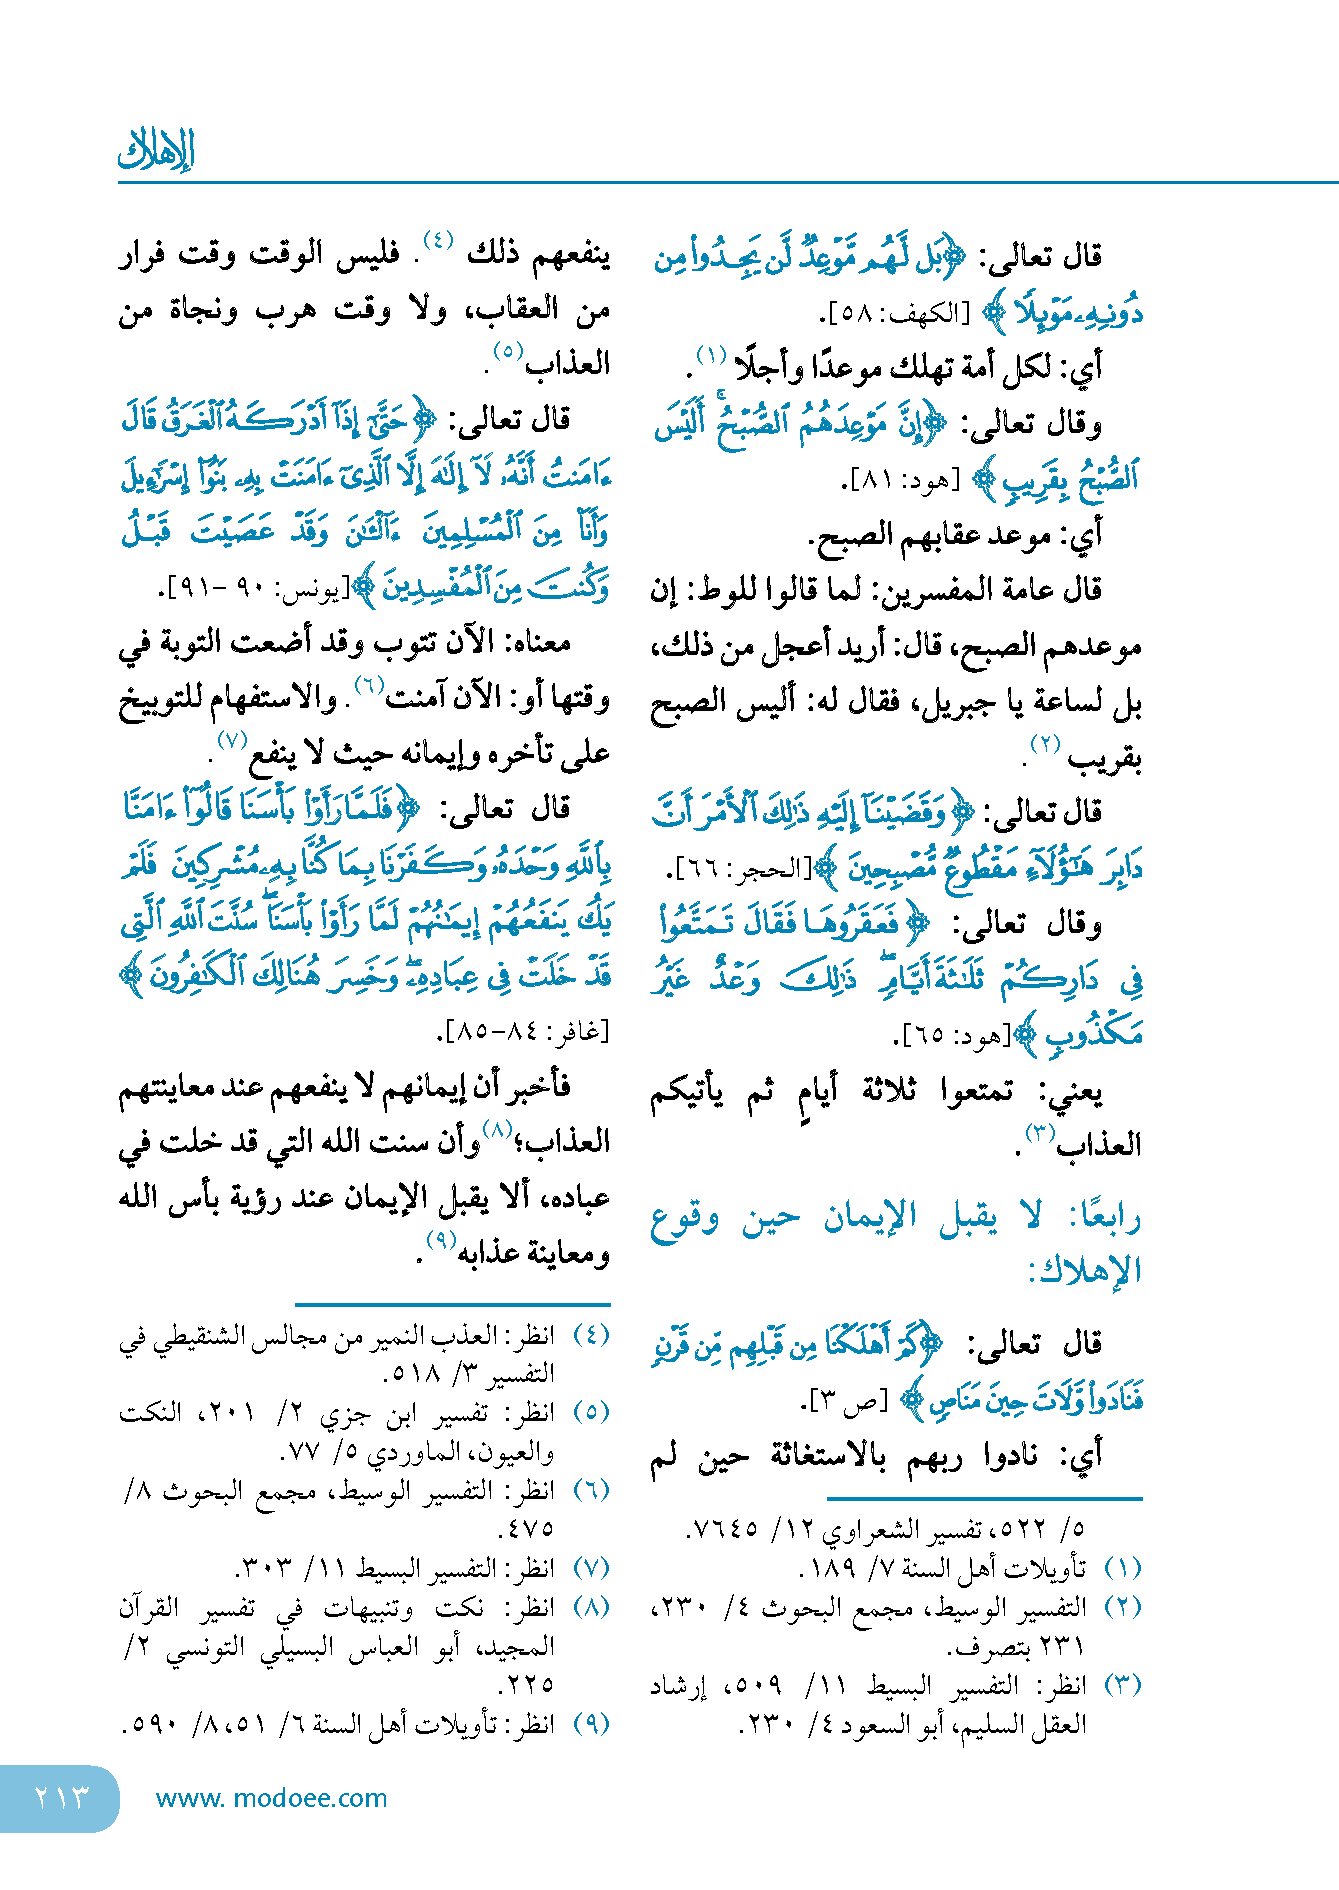 الإهلاك
قال تعالى: ﴿بَل لَّهُم مَّوْعِدٌ لَّن يَجِدُوا۟ مِن
دُونِهِۦ مَوْئِلًا ﴾ [الكهف: ٥٨].
أي: لكل أمة تهلك موعدًا وأجلًا (١).
وقال تعالى: ﴿إِنَّ مَوْعِدَهُمُ ٱلصُّبْحُ ۚ أَلَيْسَ
ٱلصُّبْحُ بِقَرِيبٍ ﴾ [هود: ٨١].
أي: موعد عقابهم الصبح.
قال عامة المفسرين: لما قالوا للوط: إن
موعدهم الصبح، قال: أريد أعجل من ذلك،
بل لساعة يا جبريل، فقال له: أليس الصبح
بقريب (٢).
قال تعالى: ﴿وَقَضَيْنَآ إِلَيْهِ ذَٰلِكَ ٱلْأَمْرَ أَنَّ
دَابِرَ هَٰٓؤُلَآءِ مَقْطُوعٌ مُّصْبِحِينَ ﴾[الحجر: ٦٦].
وقال تعالى: ﴿فَعَقَرُوهَا فَقَالَ تَمَتَّعُوا۟
فِى دَارِكُمْ ثَلَٰثَةَ أَيَّامٍ ۖ ذَٰلِكَ وَعْدٌ غَيْرُ
مَكْذُوبٍ ﴾[هود: ٦٥].
يعني: تمتعوا ثلاثة أيامٍ ثم يأتيكم
العذاب(٣).
رابعًا: لا يقبل الإيمان حين وقوع
الإهلاك:
قال تعالى: ﴿كَمْ أَهْلَكْنَا مِن قَبْلِهِم مِّن قَرْنٍ
فَنَادَوا۟ وَّلَاتَ حِينَ مَنَاصٍ ﴾ [ص ٣].
أي: نادوا ربهم بالاستغاثة حين لم
٥/ ٥٢٢، تفسير الشعراوي ١٢/ ٧٦٤٥.
(١) تأويلات أهل السنة ٧/ ١٨٩.
(٢) التفسير الوسيط، مجمع البحوث ٤/ ٢٣٠،
٢٣١ بتصرف.
(٣) انظر: التفسير البسيط ١١/ ٥٠٩، إرشاد
العقل السليم، أبو السعود ٤/ ٢٣٠.
ينفعهم ذلك (٤). فليس الوقت وقت فرار
من العقاب، ولا وقت هرب ونجاة من
العذاب(٥).
قال تعالى: ﴿حَتَّىٰٓ إِذَآ أَدْرَكَهُ ٱلْغَرَقُ قَالَ
ءَامَنتُ أَنَّهُۥ لَآ إِلَٰهَ إِلَّا ٱلَّذِىٓ ءَامَنَتْ بِهِۦ بَنُوٓا۟ إِسْرَٰٓءِيلَ
وَأَنَا۠ مِنَ ٱلْمُسْلِمِينَ ءَآلْـَٰٔنَ وَقَدْ عَصَيْتَ قَبْلُ
وَكُنتَ مِنَ ٱلْمُفْسِدِينَ ﴾[يونس: ٩٠ -٩١].
معناه: الآن تتوب وقد أضعت التوبة في
وقتها أو: الآن آمنت(٦). والاستفهام للتوبيخ
على تأخره وإيمانه حيث لا ينفع(٧).
قال تعالى: ﴿فَلَمَّا رَأَوْا۟ بَأْسَنَا قَالُوٓا۟ ءَامَنَّا
بِٱللَّهِ وَحْدَهُۥ وَكَفَرْنَا بِمَا كُنَّا بِهِۦ مُشْرِكِينَ فَلَمْ
يَكُ يَنفَعُهُمْ إِيمَٰنُهُمْ لَمَّا رَأَوْا۟ بَأْسَنَا ۖ سُنَّتَ ٱللَّهِ ٱلَّتِى
قَدْ خَلَتْ فِى عِبَادِهِۦ ۖ وَخَسِرَ هُنَالِكَ ٱلْكَٰفِرُونَ ﴾
[غافر: ٨٤-٨٥].
فأخبر أن إيمانهم لا ينفعهم عند معاينتهم
العذاب؛(٨)وأن سنت الله التي قد خلت في
عباده، ألا يقبل الإيمان عند رؤية بأس الله
ومعاينة عذابه(٩).
(٤) انظر: العذب النمير من مجالس الشنقيطي في
التفسير ٣/ ٥١٨.
(٥) انظر: تفسير ابن جزي ٢/ ٢٠١، النكت
والعيون، الماوردي ٥/ ٧٧.
(٦) انظر: التفسير الوسيط، مجمع البحوث ٨/
٤٧٥.
(٧) انظر: التفسير البسيط ١١/ ٣٠٣.
(٨) انظر: نكت وتنبيهات في تفسير القرآن
المجيد، أبو العباس البسيلي التونسي ٢/
٢٢٥.
(٩) انظر: تأويلات أهل السنة ٦/ ٥١، ٨/ ٥٩٠.
www. modoee.com
٢١٣